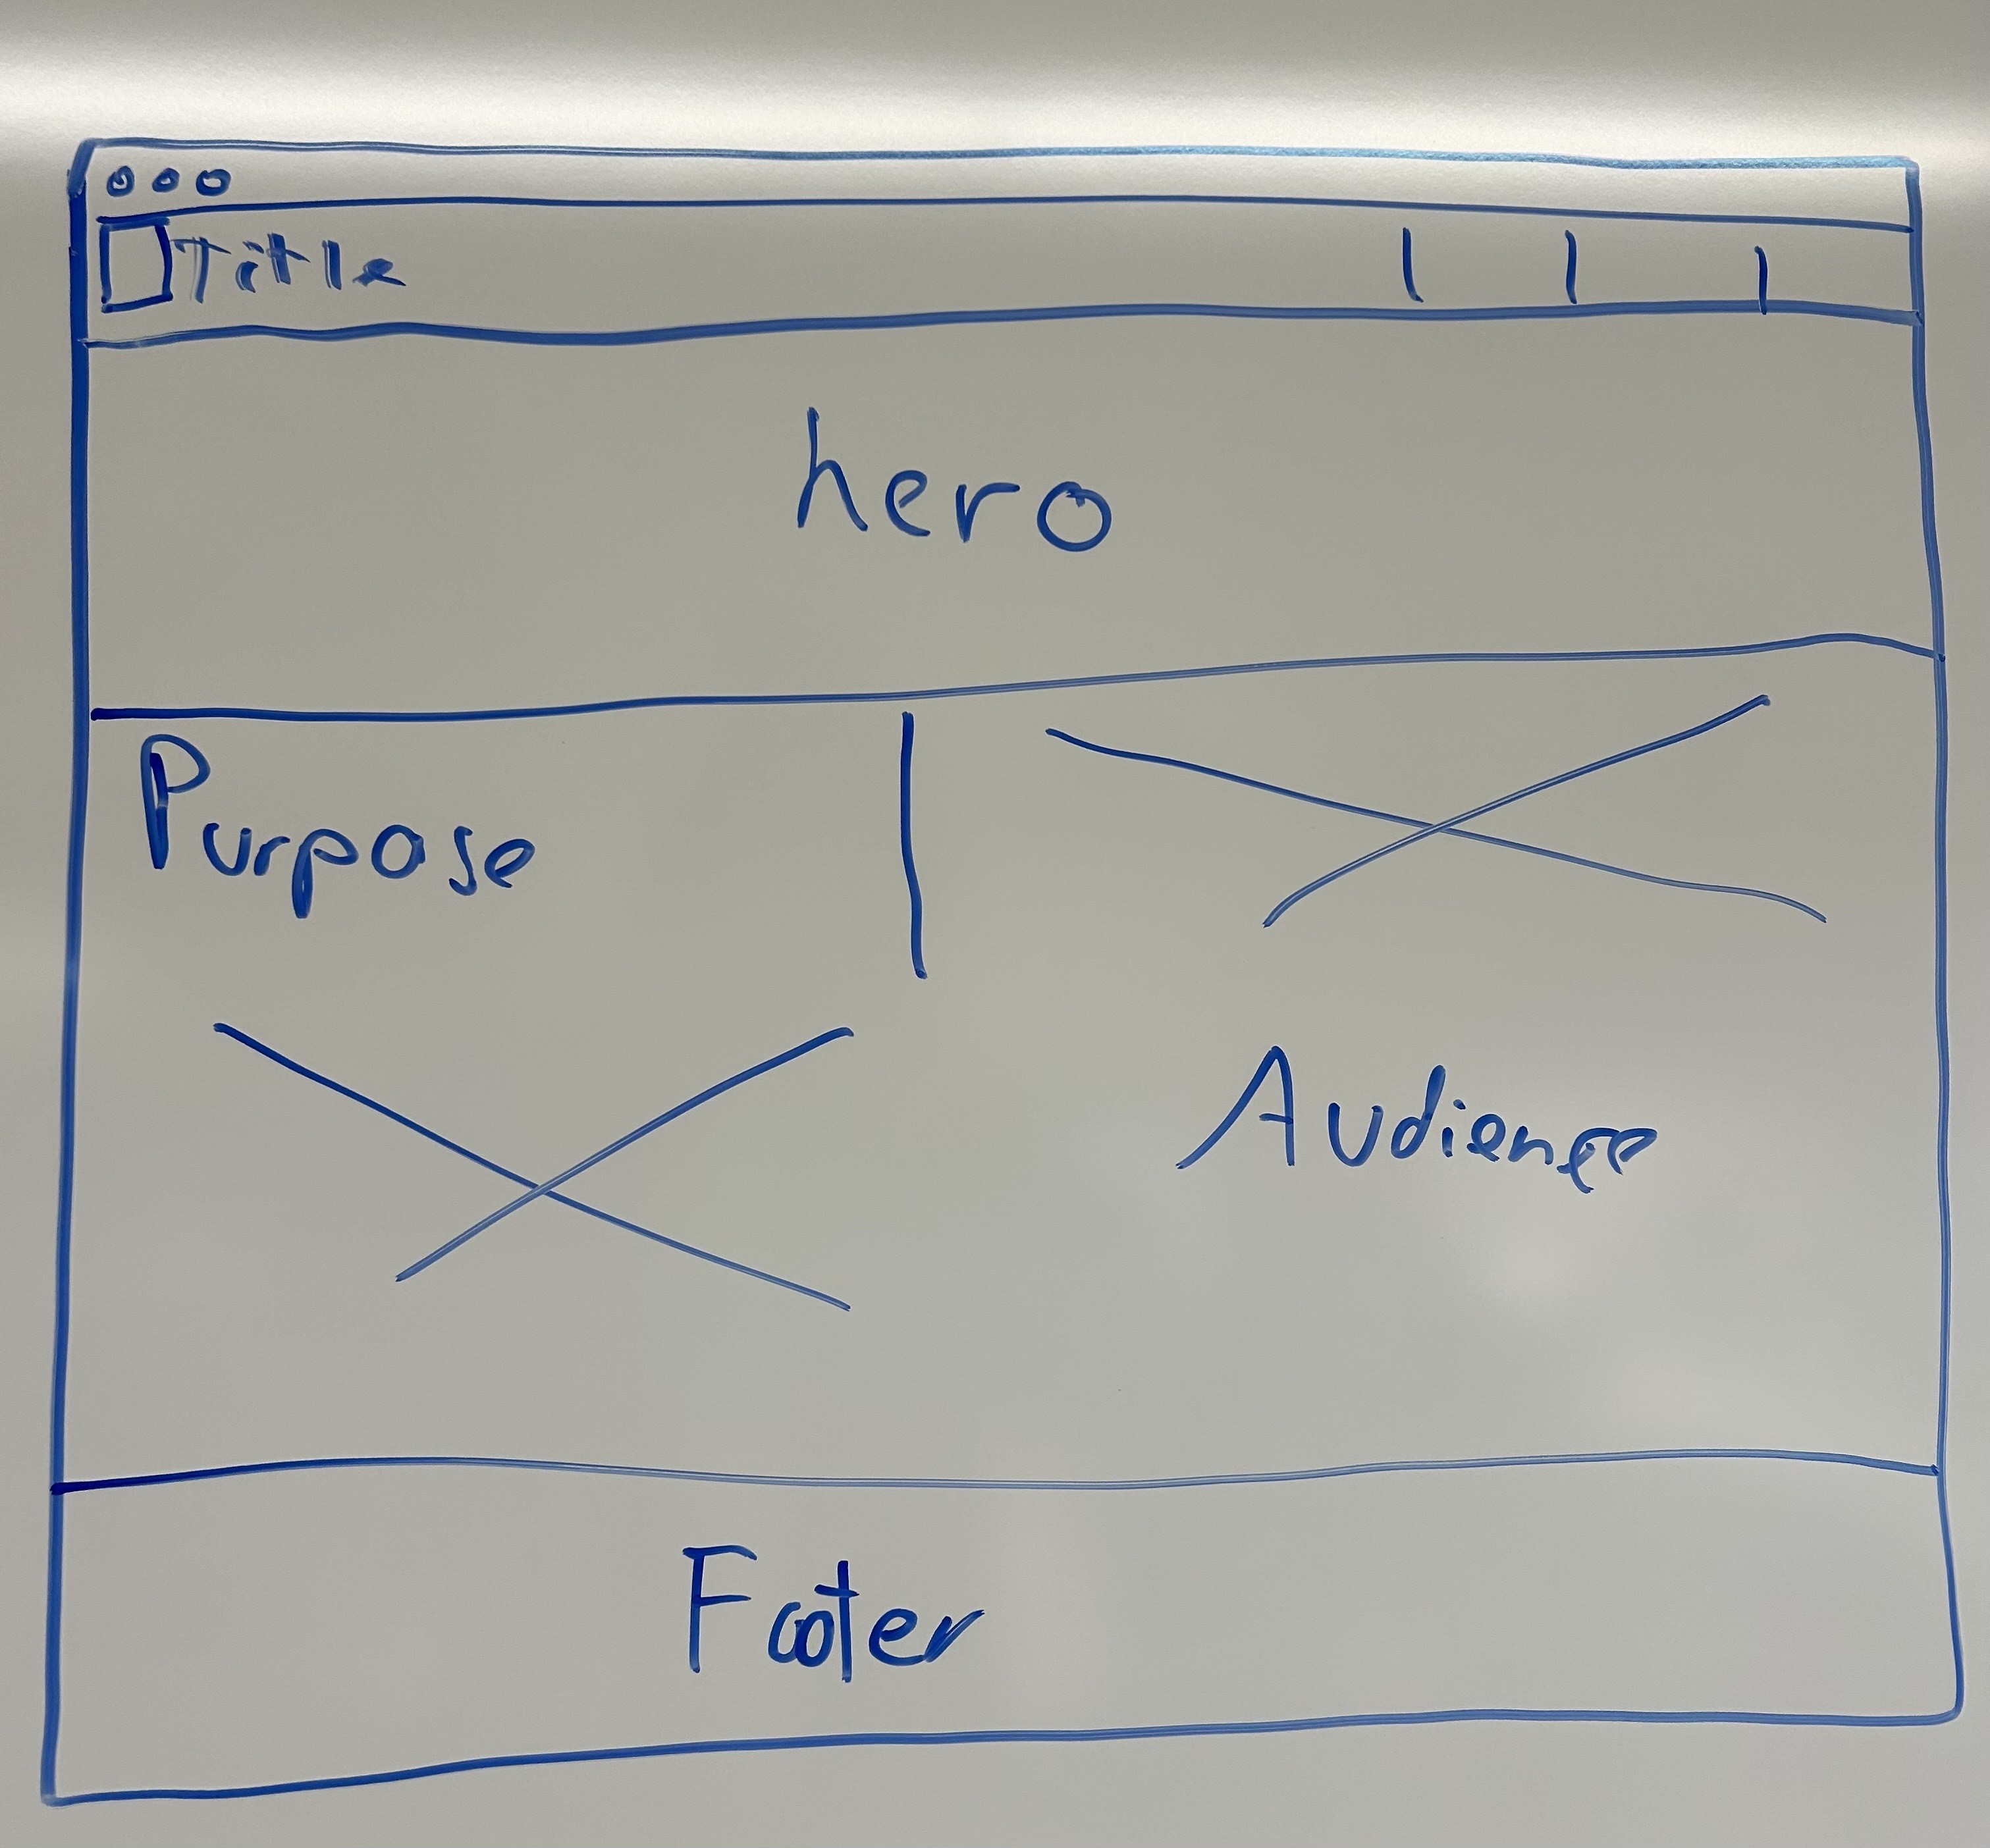 Title
hero
Purpose
Audience
Footer